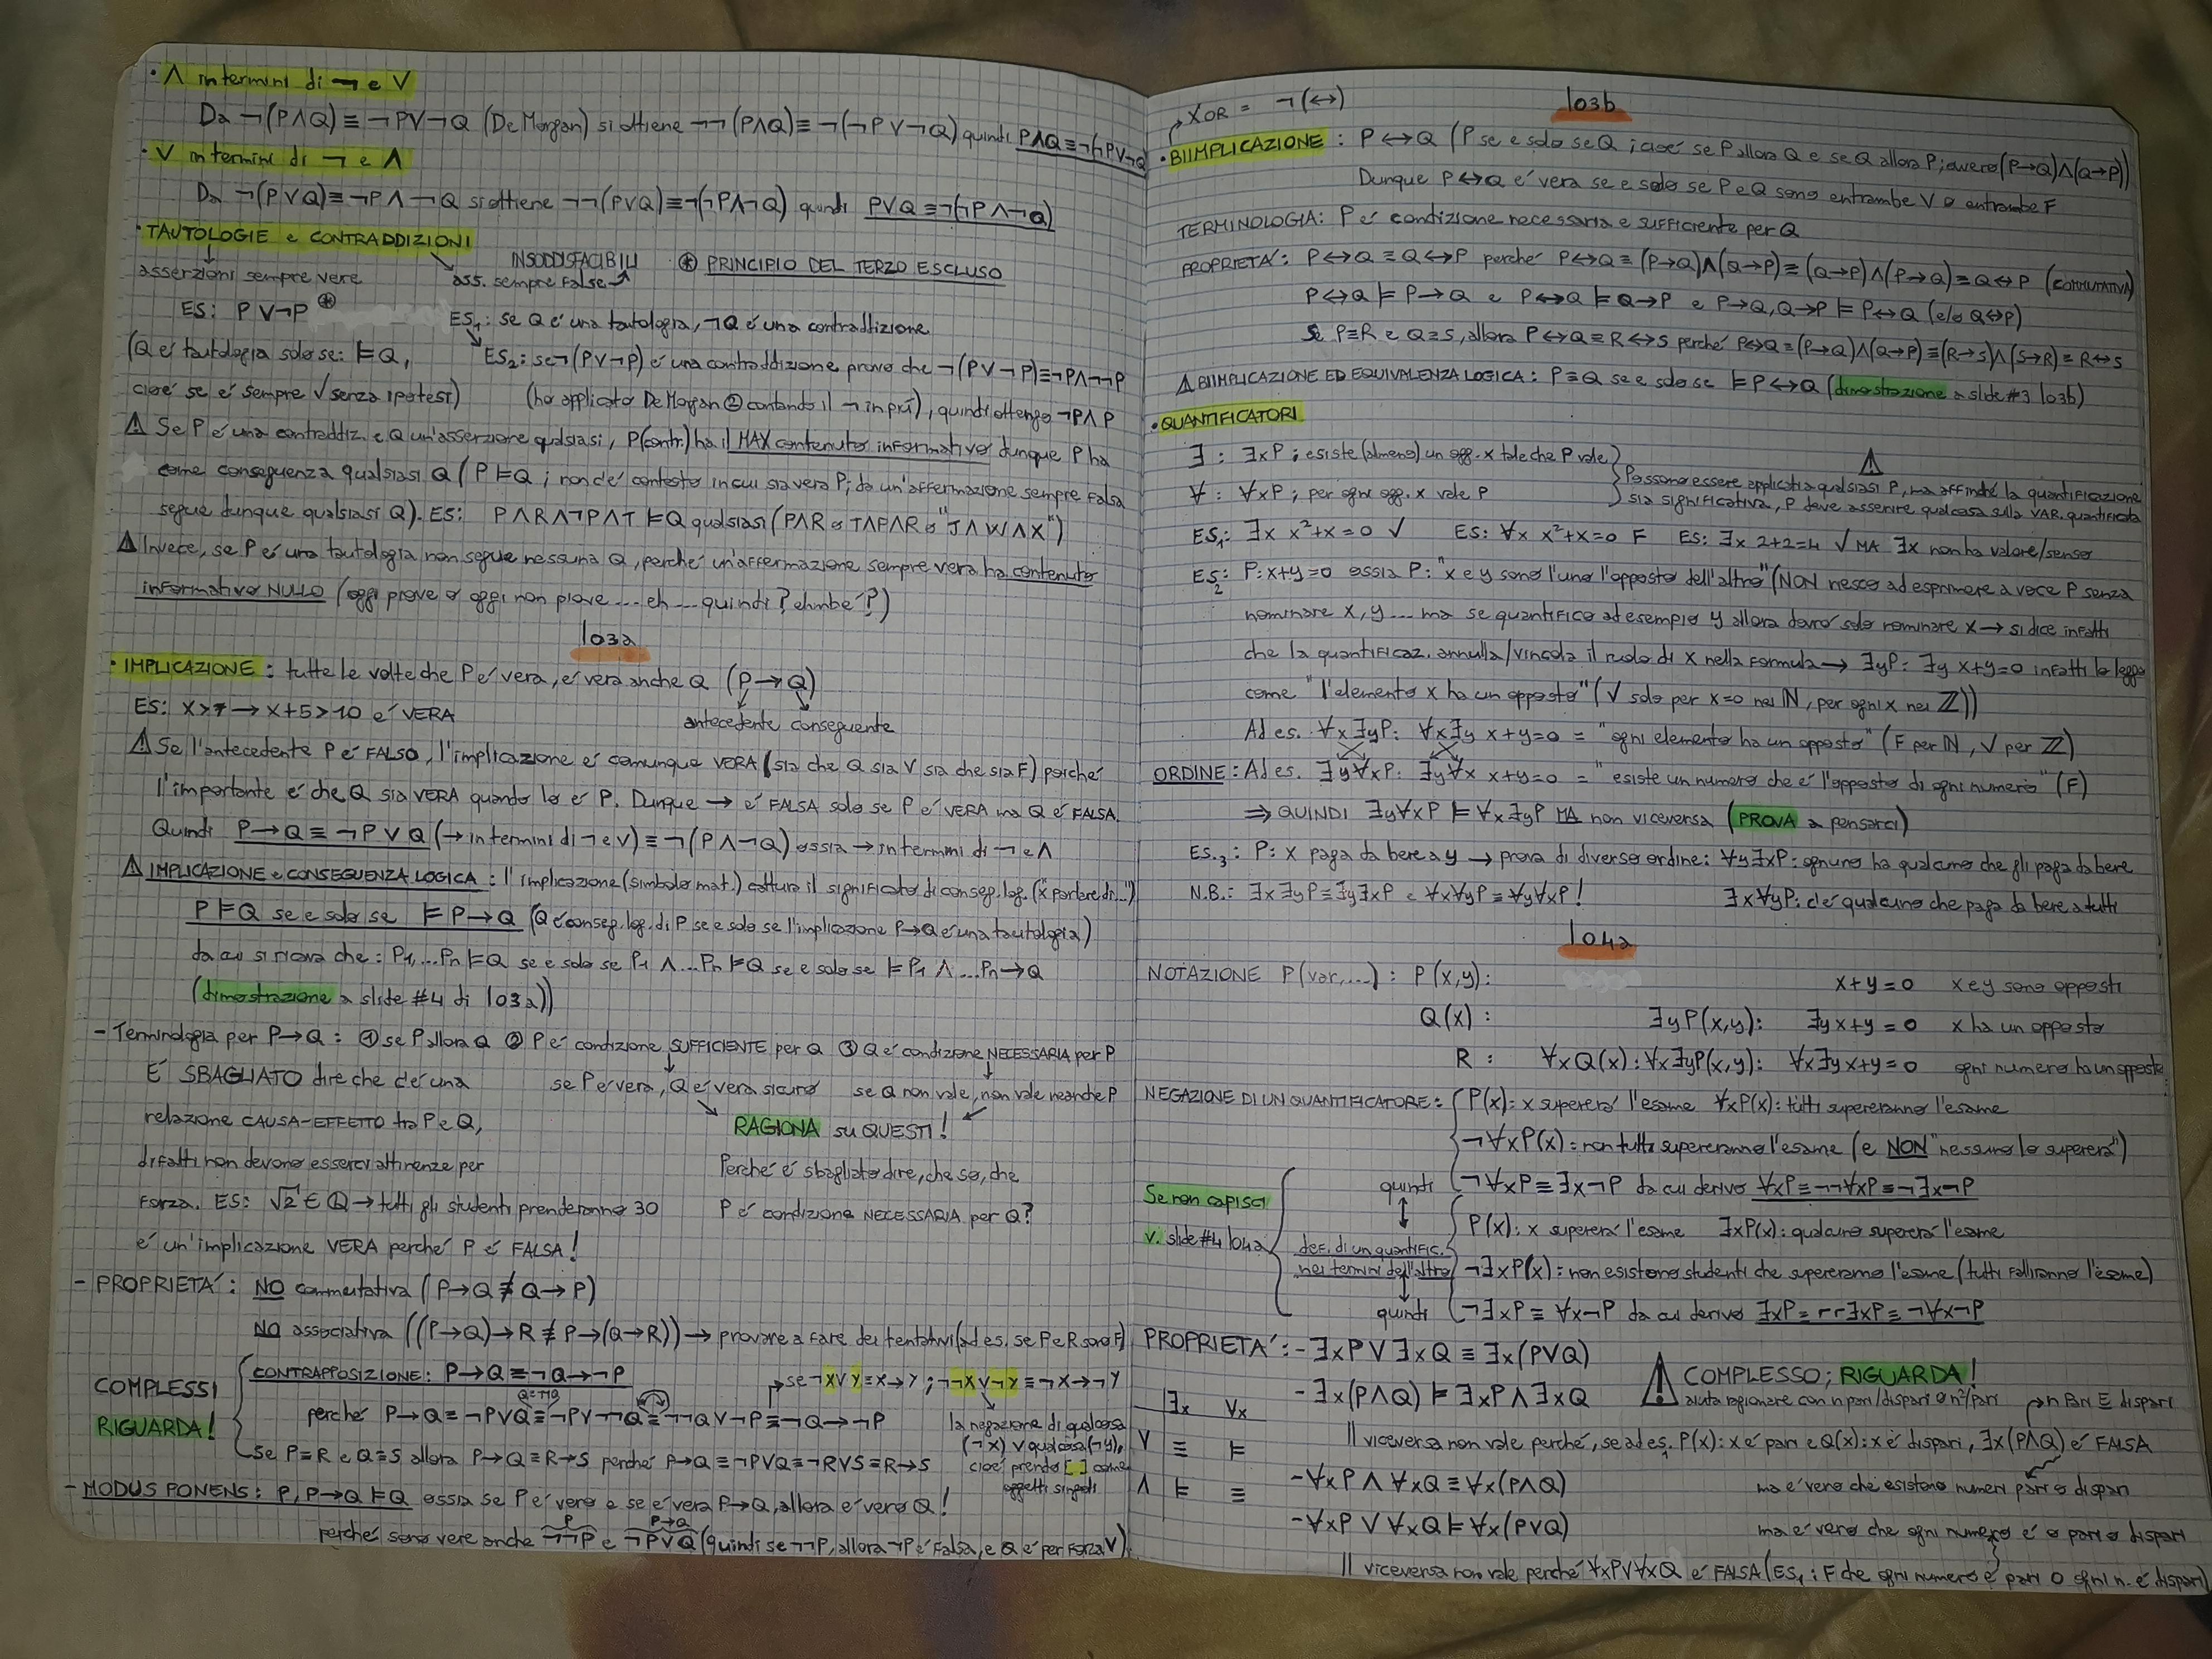 · Λ in termini di ¬ e V
Da ¬(P∧Q) ≡ ¬P∨¬Q (De Morgan) si ottiene ¬¬(P∧Q) ≡ ¬(¬P∨¬Q) quindi P∧Q≡¬(¬P∨¬Q)
· V in termini di ¬ e Λ
Da ¬(P∨Q)≡¬P∧¬Q si ottiene ¬¬(P∨Q)≡¬(¬P∧¬Q) quindi P∨Q≡¬(¬P∧¬Q)
· TAUTOLOGIE e CONTRADDIZIONI
INSODDISFACIBILI
⊛ PRINCIPIO DEL TERZO ESCLUSO
asserzioni sempre vere
ass. sempre false
ES: P∨¬P ⊛
ES1: se Q é una tautologia, ¬Q é una contraddizione
(Q é tautologia solo se: ⊨Q,
ES2: se ¬(P∨¬P) é una contraddizione provo che ¬(P∨¬P)≡¬P∧¬¬P
cioé se é sempre √ senza ipotesi)
(ho applicato De Morgan ② contando il ¬ in più), quindi ottengo ¬P∧P
⚠ Se P é una contraddiz. e Q un'asserzione qualsiasi, P(contr.) ha il MAX contenuto informativo dunque P ha
come conseguenza qualsiasi Q (P⊨Q; non c'é contesto in cui sia vera P; da un'affermazione sempre falsa
segue dunque qualsiasi Q). ES: P∧R∧¬P∧T ⊨Q qualsiasi (P∧R o T∧P∧R o "J∧W∧X")
⚠ Invece, se P é una tautologia non segue nessuna Q, perché un'affermazione sempre vera ha contenuto
informativo NULLO (oggi piove o oggi non piove.... eh.... quindi? ehmbé?)
l03a
· IMPLICAZIONE: tutte le volte che P é vera, é vera anche Q (P→Q)
ES: x>7→x+5>10 é VERA
antecedente conseguente
⚠ Se l'antecedente P é FALSO, l'implicazione é comunque VERA (sia che Q sia V sia che sia F) poiché
l'importante é che Q sia VERA quando lo é P. Dunque → é FALSA solo se P é VERA ma Q é FALSA.
Quindi P→Q ≡ ¬P∨Q (→ in termini di ¬ e V) ≡ ¬(P∧¬Q) ossia → in termini di ¬ e Λ
⚠ IMPLICAZIONE e CONSEGUENZA LOGICA: l'implicazione (simbolo mat.) cattura il significato di conseg. log. (x parlare di...)
P⊨Q se e solo se ⊨P→Q (Q é conseg. log. di P se e solo se l'implicazione P→Q é una tautologia)
da cui si ricava che: P1,...Pn⊨Q se e solo se P1∧...Pn⊨Q se e solo se ⊨P1∧...Pn→Q
(dimostrazione a slide #4 di l03a))
- Terminologia per P→Q: ① se P allora Q ② P é condizione SUFFICIENTE per Q ③ Q é condizione NECESSARIA per P
É SBAGLIATO dire che c'é una
se P é vera, Q é vera sicuro
se Q non vale, non vale neanche P
relazione CAUSA-EFFETTO tra P e Q,
RAGIONA su QUESTI!
difatti non devono esserci attinenze per
Perché é sbagliato dire, che so, che
forza. ES: √2 ∈ Q→tutti gli studenti prenderanno 30
P é condizione NECESSARIA per Q?
é un'implicazione VERA perché P é FALSA!
- PROPRIETÁ: NO commutativa (P→Q≢Q→P)
NO associativa ((P→Q)→R≢P→(Q→R))→ provare a fare dei tentativi (ad es. se P e R sono F)
COMPLESSI
RIGUARDA!
CONTRAPPOSIZIONE: P→Q≡¬Q→¬P
se ¬X∨Y≡X→Y; ¬¬X∨¬Y≡¬X→¬Y
Q≡¬¬Q
perché P→Q≡¬P∨Q≡¬P∨¬¬Q≡¬¬Q∨¬P≡¬Q→¬P
la negazione di qualcosa
(¬x) ∨ qualcosa (¬y),
cioé prendo [ ] come
oggetti singoli
Se P≡R e Q≡S allora P→Q≡R→S perché P→Q≡¬P∨Q≡¬R∨S≡R→S
- MODUS PONENS: P, P→Q⊨Q ossia se P é vero e se é vera P→Q, allora é vero Q!
P P→Q
perché sono vere anche ¬¬P e ¬P∨Q (quindi se ¬¬P, allora ¬P é falsa, e Q é per forza V)
XOR = ¬(↔)
l03b
· BIIMPLICAZIONE: P↔Q (P se e solo se Q; cioé se P allora Q e se Q allora P; ovvero (P→Q)∧(Q→P))
Dunque P↔Q é vera se e solo se P e Q sono entrambe V o entrambe F
TERMINOLOGIA: P é condizione necessaria e sufficiente per Q
PROPRIETÁ: P↔Q≡Q↔P perché P↔Q≡(P→Q)∧(Q→P)≡(Q→P)∧(P→Q)≡Q↔P (COMMUTATIVA)
P↔Q⊨P→Q e P↔Q⊨Q→P e P→Q,Q→P⊨P↔Q (e/o Q↔P)
Se P≡R e Q≡S, allora P↔Q≡R↔S perché P↔Q≡(P→Q)∧(Q→P)≡(R→S)∧(S→R)≡R↔S
⚠ BIIMPLICAZIONE ED EQUIVALENZA LOGICA: P≡Q se e solo se ⊨P↔Q (dimostrazione a slide #3 l03b)
· QUANTIFICATORI
∃: ∃xP; esiste (almeno) un ogg. x tale che P vale
∀: ∀xP; per ogni ogg. x vale P
⚠
Possono essere applicati a qualsiasi P, ma affinché la quantificazione
sia significativa, P deve asserire qualcosa sulla VAR. quantificata
ES1: ∃x x²+x=0 √ ES: ∀x x²+x=0 F ES: ∃x 2+2=4 √ MA ∃x non ha valore/senso
ES2: P: x+y=0 ossia P: "x e y sono l'uno l'opposto dell'altro" (NON riesco ad esprimere a voce P senza
nominare x, y.... ma se quantifico ad esempio y allora dovró solo nominare x → si dice infatti
che la quantificaz. annulla/vincola il ruolo di x nella formula → ∃yP: ∃y x+y=0 infatti lo leggo
come "l'elemento x ha un opposto" (√ solo per x=0 nei ℕ, per ogni x nei ℤ))
Ad es. ∀x∃yP: ∀x∃y x+y=0 = "ogni elemento ha un opposto" (F per ℕ, √ per ℤ)
ORDINE: Ad es. ∃y∀xP: ∃y∀x x+y=0 = "esiste un numero che é l'opposto di ogni numero" (F)
⇒ QUINDI ∃y∀xP ⊨ ∀x∃yP MA non viceversa (PROVA a pensarci)
Es.3: P: x paga da bere a y → prova di diverso ordine: ∀y∃xP: ognuno ha qualcuno che gli paga da bere
N.B.: ∃x∃yP≡∃y∃xP e ∀x∀yP≡∀y∀xP!
∃x∀yP: c'é qualcuno che paga da bere a tutti
l04a
NOTAZIONE P(var,...): P(x,y): x+y=0 x e y sono opposti
Q(x): ∃yP(x,y): ∃y x+y=0 x ha un opposto
R: ∀xQ(x): ∀x∃yP(x,y): ∀x∃y x+y=0 ogni numero ha un opposto
NEGAZIONE DI UN QUANTIFICATORE: P(x): x supererá l'esame ∀xP(x): tutti supereranno l'esame
¬∀xP(x): non tutti supereranno l'esame (e NON "nessuno lo supererá")
Se non capisci
v. slide #4 l04a
quindi ¬∀xP≡∃x¬P da cui derivo ∀xP≡¬¬∀xP≡¬∃x¬P
P(x): x supererá l'esame ∃xP(x): qualcuno supererá l'esame
def. di un quantific.
nei termini dell'altro
¬∃xP(x): non esistono studenti che supereranno l'esame (tutti falliranno l'esame)
quindi ¬∃xP≡∀x¬P da cui derivo ∃xP≡¬¬∃xP≡¬∀x¬P
PROPRIETÁ: -∃xP∨∃xQ≡∃x(P∨Q)
⚠ COMPLESSO; RIGUARDA!
-∃x(P∧Q)⊨∃xP∧∃xQ
aiuta ragionare con n pari/dispari o n²/pari
n pari E dispari
∃x ∀x
V ≡ ⊨
Λ ⊨ ≡
Il viceversa non vale perché, se ad es. P(x): x é pari e Q(x): x é dispari, ∃x(P∧Q) é FALSA
ma é vero che esistono numeri pari o dispari
-∀xP∧∀xQ≡∀x(P∧Q)
-∀xP∨∀xQ⊨∀x(P∨Q)
ma é vero che ogni numero é o pari o dispari
Il viceversa non vale perché ∀xP∨∀xQ é FALSA (ES1: F che ogni numero é pari O ogni n. é dispari)